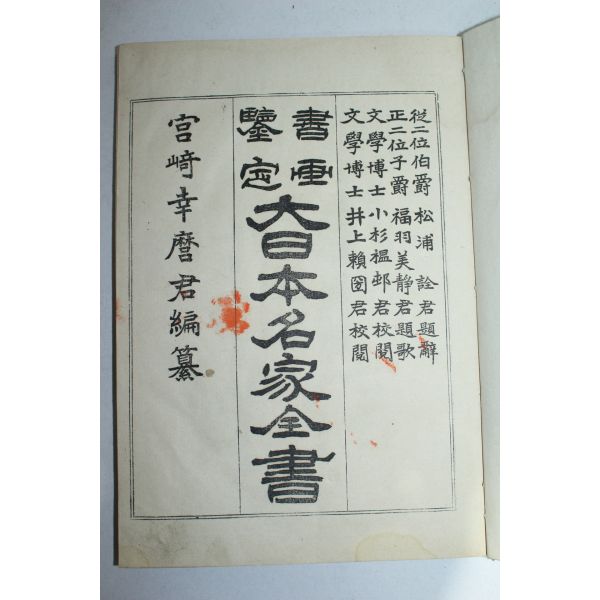 從二位伯爵 松浦 詮君題辭
正二位子爵 福羽美静君題歌
文學博士 小杉榲邨君校閲
文學博士 井上頼圀君校閲
書画
鑒定
大日本名家全書
宮﨑幸麿君編纂